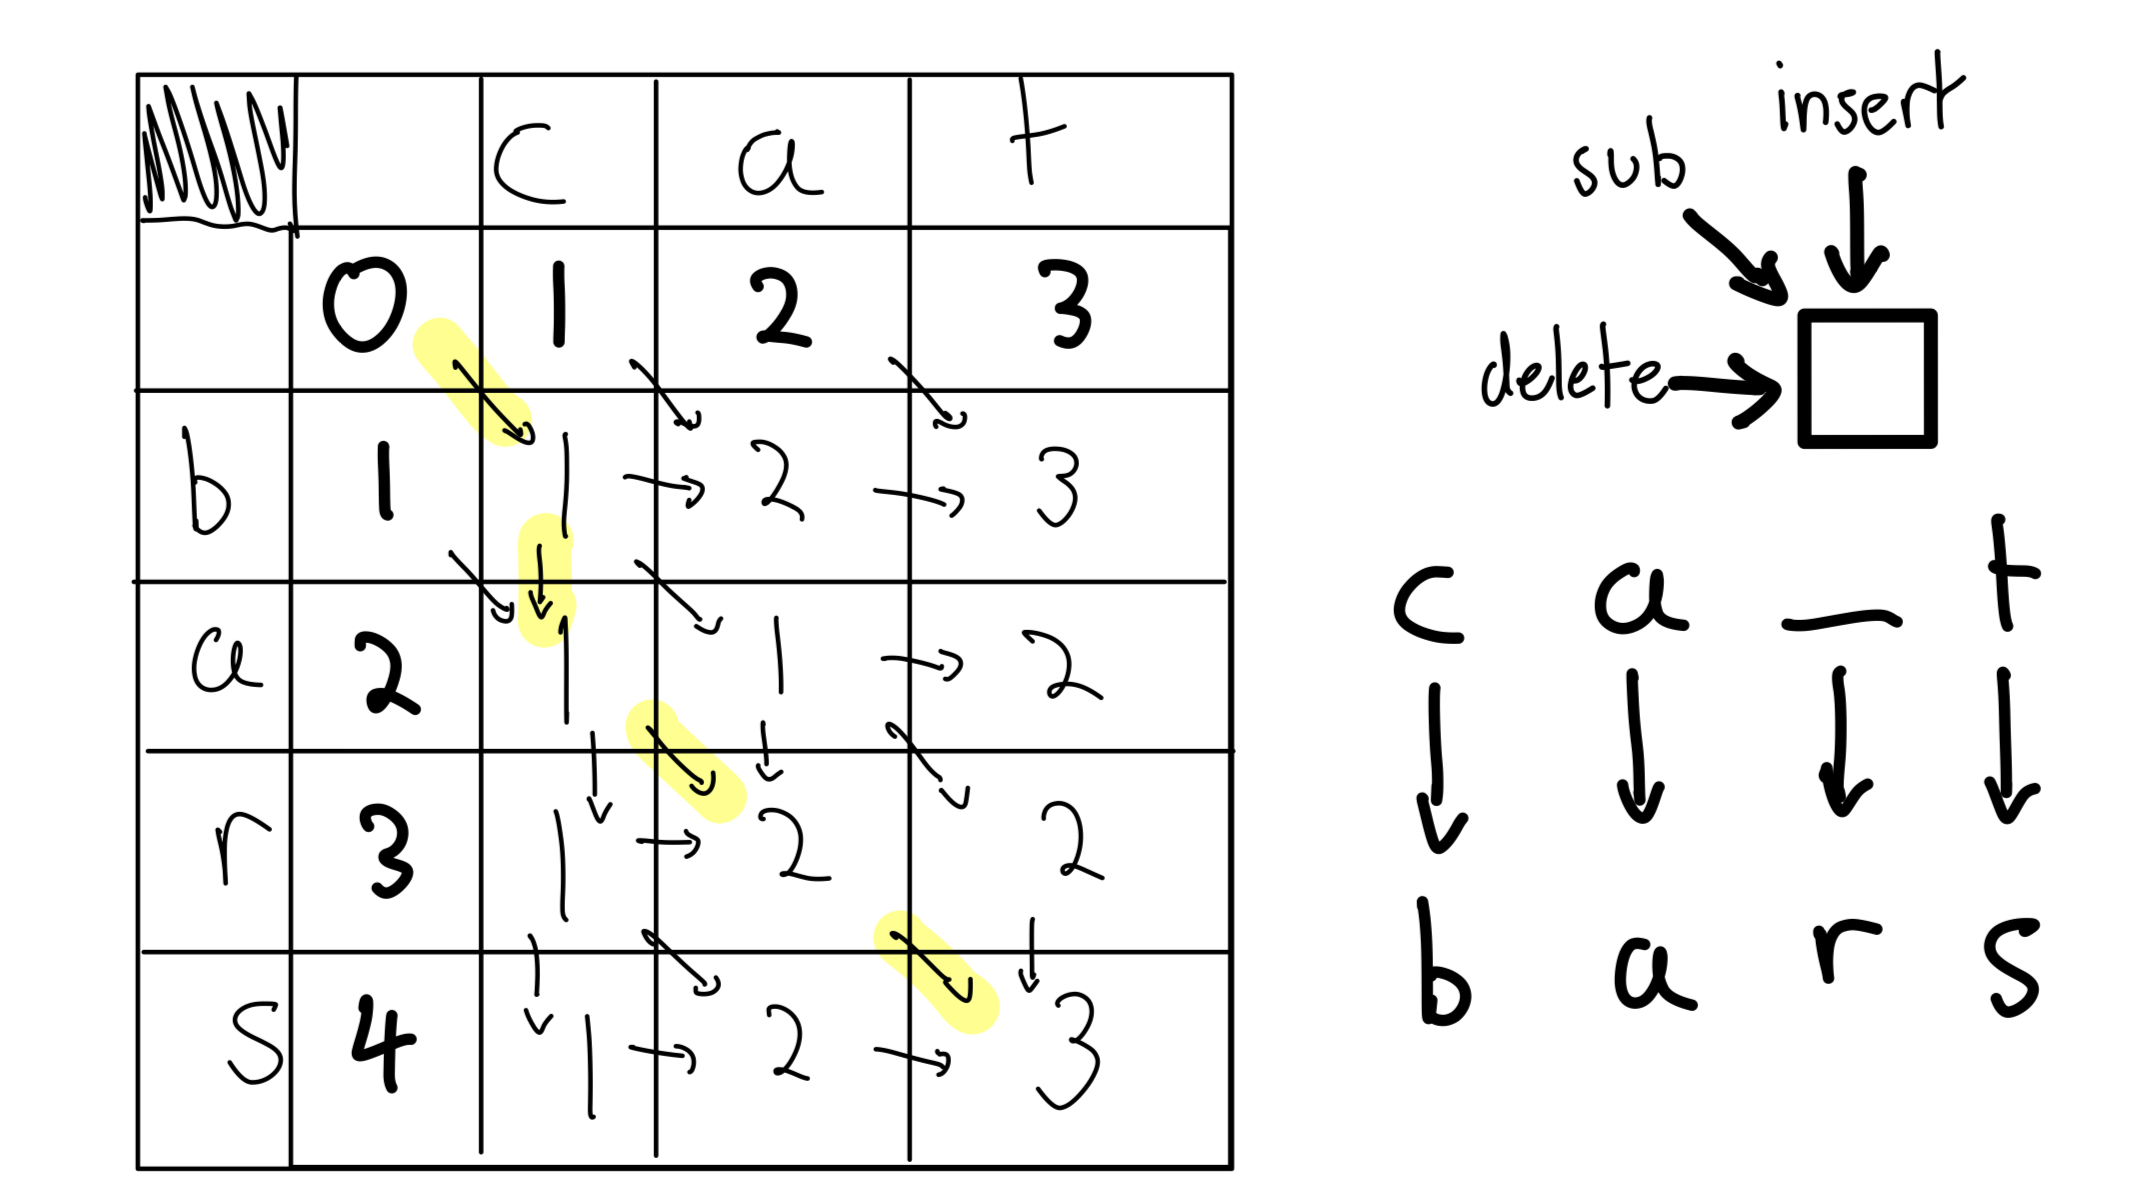 c a t
0 1 2 3
b 1 1 2 3
a 2 1 1 2
r 3 1 2 2
s 4 1 2 3
insert
sub
delete
c a _ t
b a r s